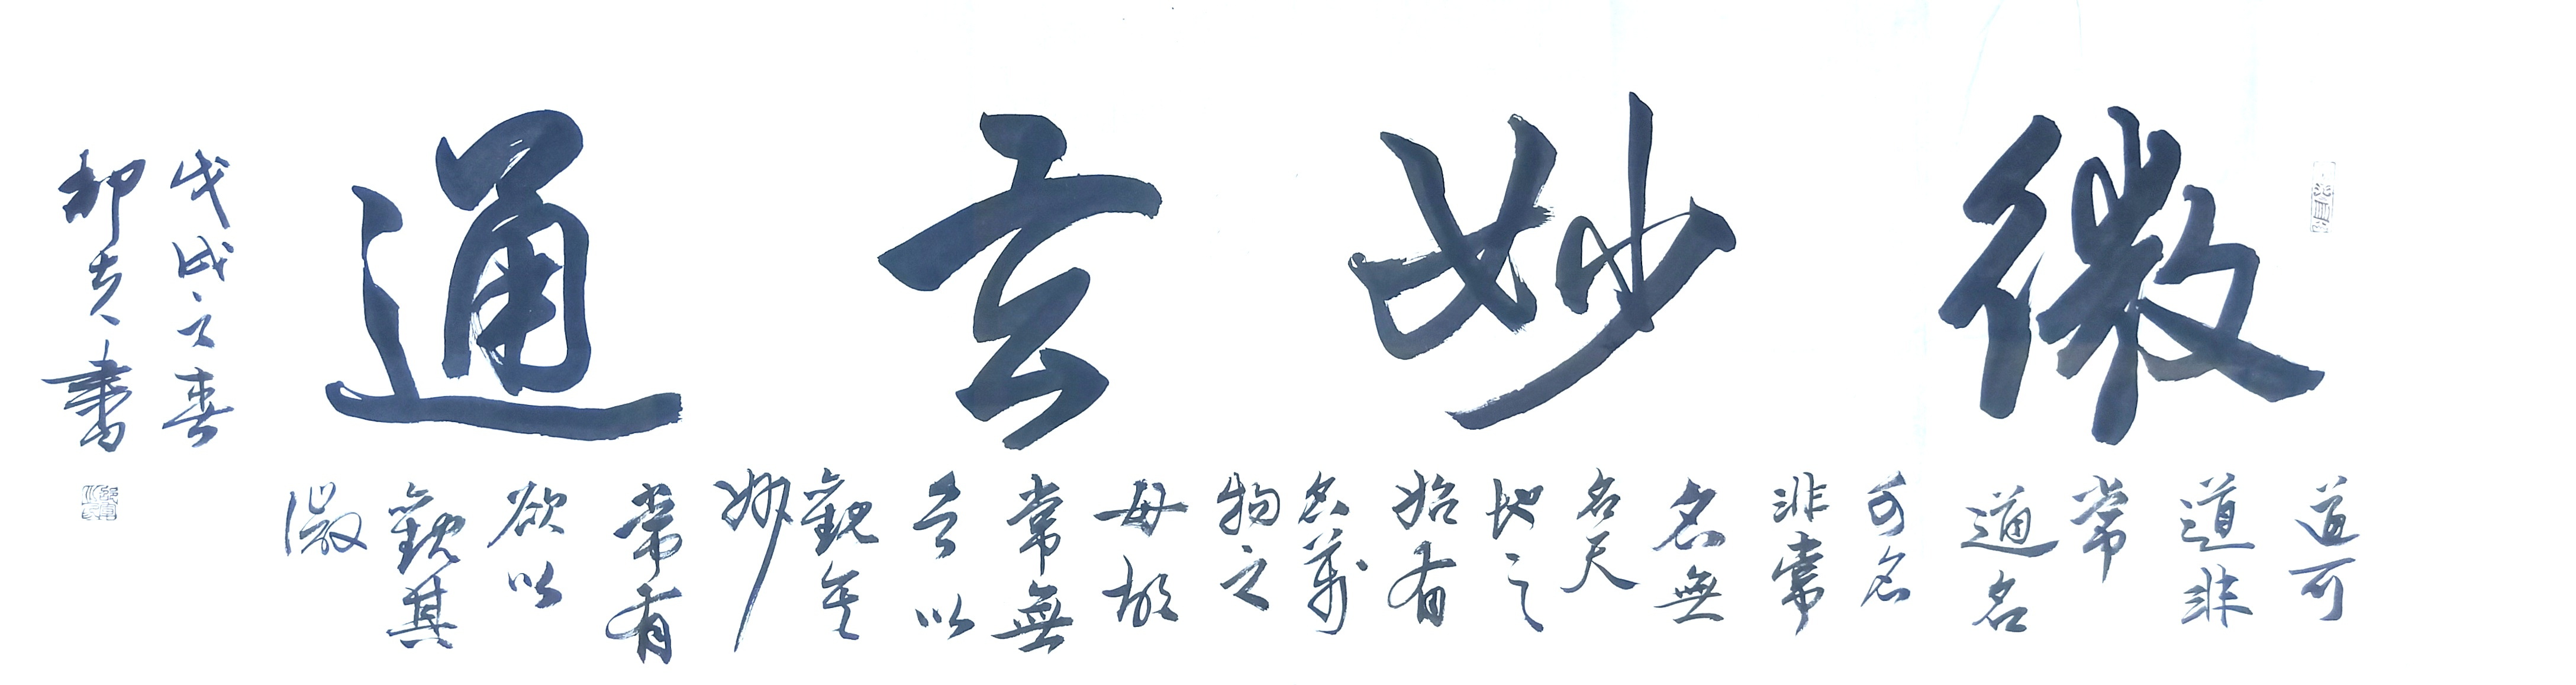 微妙玄通
道可
道非
常
道名
可名
非常
名無
名天
地之
始有
名萬
物之
母故
常無
以
觀其
妙
常有
欲以
觀其
徼
戊戌之春
書